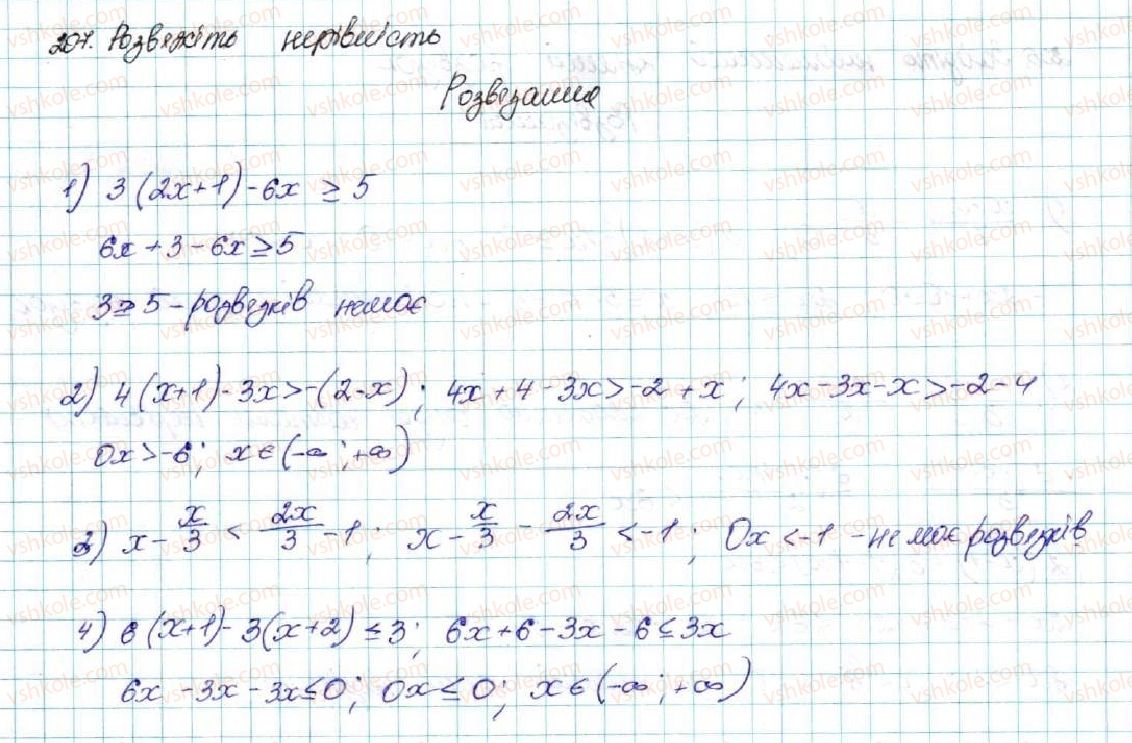 207. Розвяжіть нерівність
Розвязання
1) 3(2x+1)-6x ≥ 5
6x+3-6x≥5
3≥5-розвязків немає
2) 4(x+1)-3x>-(2-x); 4x+4-3x>-2+x; 4x-3x-x>-2-4
0x>-6; x∈(-∞;+∞)
3) x-x/3 < 2x/3 -1; x-x/3 - 2x/3 <-1; 0x<-1 -немає розвязків
4) 6(x+1)-3(x+2)≤3; 6x+6-3x-6≤3x
6x-3x-3x≤0; 0x≤0; x∈(-∞;+∞)